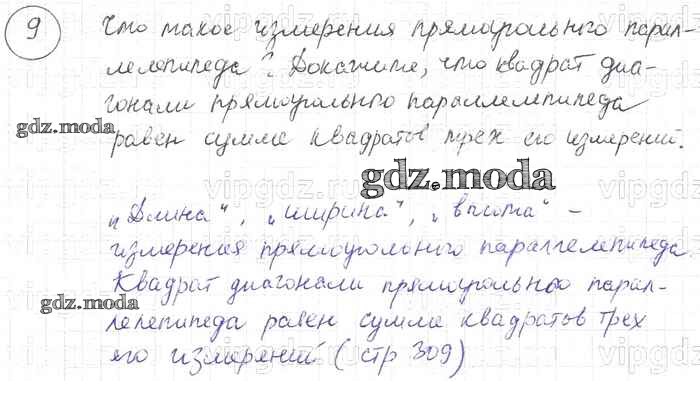 9 Что такое измерения прямоугольного парал-
лелепипеда? Докажите, что квадрат диа-
гонали прямоугольного параллелепипеда
gdz.moda
равен сумме квадратов трех его измерений.
gdz.moda
"Длина", "ширина", "высота" -
измерения прямоугольного параллелепипеда.
Квадрат диагонали прямоугольного парал-
gdz.moda
лелепипеда равен сумме квадратов трех
его измерений (стр 309)